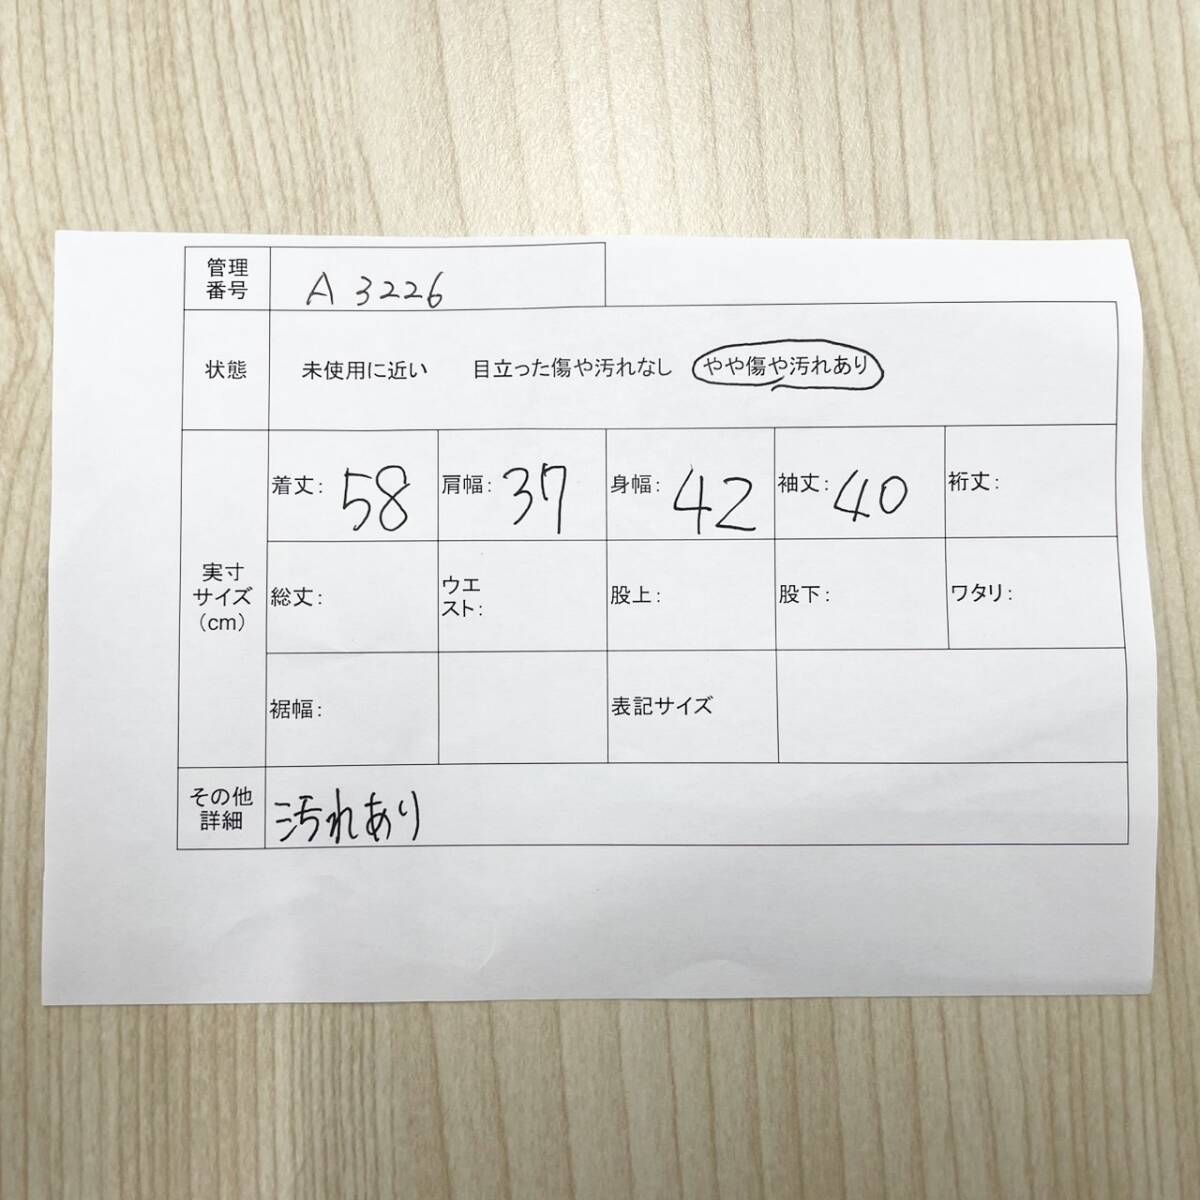 管理
番号
A 3226
状態
未使用に近い 目立った傷や汚れなし やや傷や汚れあり
実寸
サイズ
(cm)
着丈: 58 肩幅: 37 身幅: 42 袖丈: 40 裄丈:
総丈: ウエ
スト: 股上: 股下: ワタリ:
裾幅: 表記サイズ
その他
詳細
汚れあり